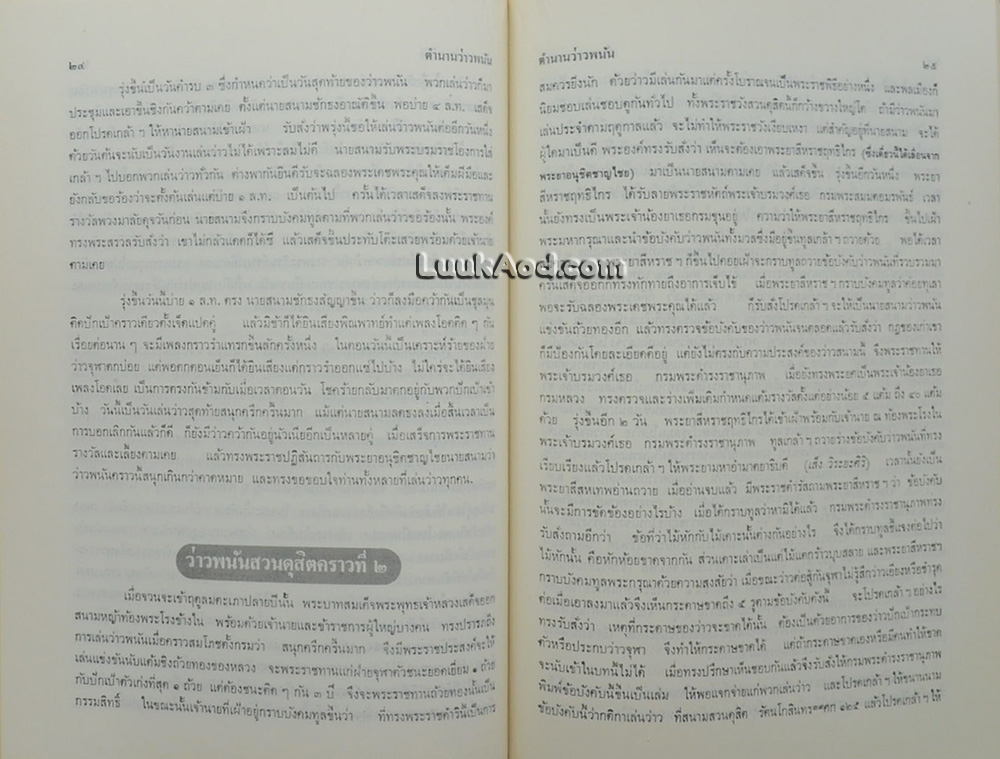 ๒๔
ตำนานว่าวพนัน
รุ่งขึ้นเป็นวันคำรบ ๓ ซึ่งกำหนดว่าเป็นวันสุดท้ายของว่าวพนัน พวกเล่นว่าวก็มา
ประชุมและเอาขึ้นชิงกันคว้าตามเคย ตั้งแต่นายสนามชักธงอาณัติขึ้น พอบ่าย ๔ ล.ท. เสด็จ
ออกโปรดเกล้า ฯ ให้หานายสนามเข้าเฝ้า รับสั่งว่าพรุ่งนี้ขอให้เล่นว่าวพนันต่ออีกวันหนึ่ง
ด้วยวันต้นจะนับเป็นวันงานเล่นว่าวไม่ได้เพราะลมไม่ดี นายสนามรับพระบรมราชโองการใส่
เกล้า ฯ ไปบอกพวกเล่นว่าวทั่วกัน ต่างพากันยินดีรับจะฉลองพระเดชพระคุณให้เต็มฝีมือและ
ยังกลับขอร้องว่าจะตั้งต้นเล่นแต่บ่าย ๑ ล.ท. เป็นต้นไป ครั้นได้เวลาเสด็จลงพระราชทาน
รางวัลพวงมาลัยดุจวันก่อน นายสนามจึงกราบบังคมทูลตามที่พวกเล่นว่าวขอร้องนั้น พระองค์
ทรงพระสรวลรับสั่งว่า เขาไม่กลัวแดดก็ได้ซี แล้วเสด็จขึ้นประทับโต๊ะเสวยพร้อมด้วยเจ้านาย
ตามเคย
รุ่งขึ้นวันนี้บ่าย ๑ ล.ท. ตรง นายสนามชักธงสัญญาขึ้น ว่าวก็ลงมือคว้ากันเป็นชุลมุน
ติดปักเป้าคราวเดียวตั้งเจ็ดแปดคู่ แล้วมิช้าก็ได้ยินเสียงพิณพาทย์ทำแต่เพลงโอดติด ๆ กัน
เรื่อยต่อนาน ๆ จะมีเพลงกราวรำแทรกขึ้นสักครั้งหนึ่ง ในตอนวันนี้เป็นเคราะห์ร้ายของฝ่าย
ว่าวจุฬาตกบ่อย แต่พอตกตอนเย็นก็ได้ยินเสียงแต่กราวรำออกแซ่ไปบ้าง ไม่ใคร่จะได้ยินเสียง
เพลงโอดเลย เป็นการตรงกันข้ามกับเมื่อเวลาตอนวัน โชคร้ายกลับมาตกอยู่กับพวกปักเป้าเข้า
บ้าง วันนี้เป็นวันเล่นว่าวสุดท้ายสนุกครึกครื้นมาก แม้แต่นายสนามลดธงลงเมื่อสิ้นเวลาเป็น
การบอกเลิกกันแล้วก็ดี ก็ยังมีว่าวคว้ากันอยู่นัวเนียอีกเป็นหลายคู่ เมื่อเสร็จการพระราชทาน
รางวัลและเลี้ยงตามเคย แล้วทรงพระราชปฏิสันถารกับพระยาอนุชิตชาญไชยนายสนามว่า
ว่าวพนันคราวนี้สนุกเกินกว่าคาดหมาย และทรงขอบใจท่านทั้งหลายที่เล่นว่าวทุกคน.
ว่าวพนันสวนดุสิตคราวที่ ๒
เมื่อจวนจะเข้าฤดูลมตะเภาปลายปีนั้น พระบาทสมเด็จพระพุทธเจ้าหลวงเสด็จออก
สนามหญ้าท้องพระโรงข้างใน พร้อมด้วยเจ้านายและข้าราชการผู้ใหญ่บางคน ทรงปรารถถึง
การเล่นว่าวพนันเมื่อคราวสมโภชตั้งกรมว่า สนุกครึกครื้นมาก จึงมีพระราชประสงค์จะให้
เล่นแข่งขันนับแต้มชิงถ้วยทองของหลวง จะพระราชทานแก่ฝ่ายจุฬาตัวชนะยอดเยี่ยม ๑ ถ้วย
กับปักเป้าตัวเก่งที่สุด ๑ ถ้วย แต่ต้องชนะติด ๆ กัน ๓ ปี จึงจะพระราชทานถ้วยทองนั้นเป็น
กรรมสิทธิ์ ในขณะนั้นเจ้านายที่เฝ้าอยู่กราบบังคมทูลขึ้นว่า ที่ทรงพระราชดำรินี้เป็นการ
ตำนานว่าวพนัน
๒๕
สมควรยิ่งนัก ด้วยว่าวมีเล่นกันมาแต่ครั้งโบราณจนเป็นพระราชพิธีอย่างหนึ่ง และพลเมืองก็
นิยมชอบเล่นชอบดูกันทั่วไป ทั้งพระราชวังสวนดุสิตนี้ก็กว้างขวางใหญ่โต ถ้ามีว่าวพนันมา
เล่นประจำตามฤดูกาลแล้ว จะไม่ทำให้พระราชวังเงียบเหงา แต่สำคัญอยู่ที่นายสนาม จะได้
ผู้ใดมาเป็นดี พระองค์ทรงรับสั่งว่า เห็นจะต้องเอาพระยาสีหราชฤทธิไกร (ซึ่งเดี๋ยวนี้ได้เลื่อนจาก
พระยาอนุชิตชาญไชย) มาเป็นนายสนามตามเคย แล้วเสด็จขึ้น รุ่งขึ้นอีกวันหนึ่ง พระยา
สีหราชฤทธิไกร ได้รับลายพระราชหัตถ์พระเจ้าบรมวงศ์เธอ กรมพระสมมตอมรพันธ์ เวลา
นั้นยังทรงเป็นพระเจ้าน้องยาเธอกรมขุนอยู่ ความว่าให้พระยาสีหราชฤทธิไกร ขึ้นไปเฝ้า
พระมหากรุณาและนำข้อบังคับว่าวพนันทั้งมวลซึ่งมีอยู่ขึ้นทูลเกล้า ฯ ถวายด้วย พอได้เวลา
พระยาสีหราช ฯ ก็ขึ้นไปคอยเฝ้าจะกราบทูลถวายข้อบังคับว่าวพนันที่รวบรวมมา
ครั้นเสด็จออกก็ทรงทักทายถึงอาการเจ็บไข้ เมื่อพระยาสีหราช ฯ กราบบังคมทูลว่าค่อยทุเลา
พอจะรับฉลองพระเดชพระคุณได้แล้ว ก็รับสั่งโปรดเกล้า ฯ จะให้เป็นนายสนามว่าวพนัน
แข่งขันถ้วยทองอีก แล้วทรงตรวจข้อบังคับของว่าวพนันจนตลอดแล้วรับสั่งว่า กฎของเก่าเขา
ก็มีป้องกันโดยละเอียดดีอยู่ แต่ยังไม่ตรงกับความประสงค์ของว่าวสนามนี้ จึงพระราชทานให้
พระเจ้าบรมวงศ์เธอ กรมพระดำรงราชานุภาพ เมื่อยังทรงพระยศเป็นพระเจ้าน้องยาเธอ
กรมหลวง ทรงตรวจและร่างเพิ่มเติมกำหนดแต้มรางวัลตั้งแต่อย่างน้อย ๕ แต้ม ถึง ๔๐ แต้ม
ด้วย รุ่งขึ้นอีก ๒ วัน พระยาสีหราชฤทธิไกรได้เข้าเฝ้าพร้อมกับเจ้านาย ณ ท้องพระโรงใน
พระเจ้าบรมวงศ์เธอ กรมพระดำรงราชานุภาพ ทูลเกล้า ฯ ถวายร่างข้อบังคับว่าวพนันที่ทรง
เรียบเรียงแล้วโปรดเกล้า ฯ ให้พระยามหาอำมาตยาธิบดี (เส็ง วิรยะศิริ) เวลานั้นยังเป็น
พระยาศรีสหเทพอ่านถวาย เมื่ออ่านจบแล้ว มีพระราชดำรัสถามพระยาสีหราช ฯ ว่า ข้อบังคับ
นั้นจะมีการขัดข้องอย่างไรบ้าง เมื่อได้กราบทูลว่าหามิได้แล้ว กรมพระดำรงราชานุภาพทรง
รับสั่งถามอีกว่า ข้อที่ว่าไม้หักกับไม้เดาะนั้นต่างกันอย่างไร จึงได้กราบทูลชี้แจงต่อไปว่า
ไม้หักนั้น คือหักห้อยขาดจากกัน ส่วนเดาะเล่าเป็นแต่ไม้แตกร้าวบุบสลาย และพระยาสีหราชฯ
กราบบังคมทูลพระกรุณาด้วยความสงสัยว่า เมื่อขณะว่าวต่อสู้กันจุฬาไม่รู้สึกว่าวเอียงหรือชำรุด
ต่อเมื่อเอาลงมาแล้วจึงเห็นกระดาษขาดถึง ๕ รูตามข้อบังคับดังนี้ จะโปรดเกล้า ฯ อย่างไร
ทรงรับสั่งว่า เหตุที่กระดาษของว่าวจะขาดได้นั้น ต้องเป็นด้วยอาการของว่าวปักเป้ากระทบ
ตัวหรือประกบว่าวจุฬา จึงทำให้กระดาษขาดได้ แต่ถ้ากระดาษขาดเองหรือมีคนทำให้ขาด
จะนับเข้าในบทนี้ไม่ได้ เมื่อทรงปรึกษาเห็นชอบกันแล้วจึงรับสั่งให้กรมพระดำรงราชานุภาพ
พิมพ์ข้อบังคับนี้ขึ้นเป็นเล่ม ให้พอแจกจ่ายแก่พวกเล่นว่าว และโปรดเกล้า ฯ ให้ขนานนาม
ข้อบังคับนี้ว่ากติกาเล่นว่าว ที่สนามสวนดุสิต รัตนโกสินทรศก ๑๒๕ แล้วโปรดเกล้า ฯ ให้
LuukAod.com